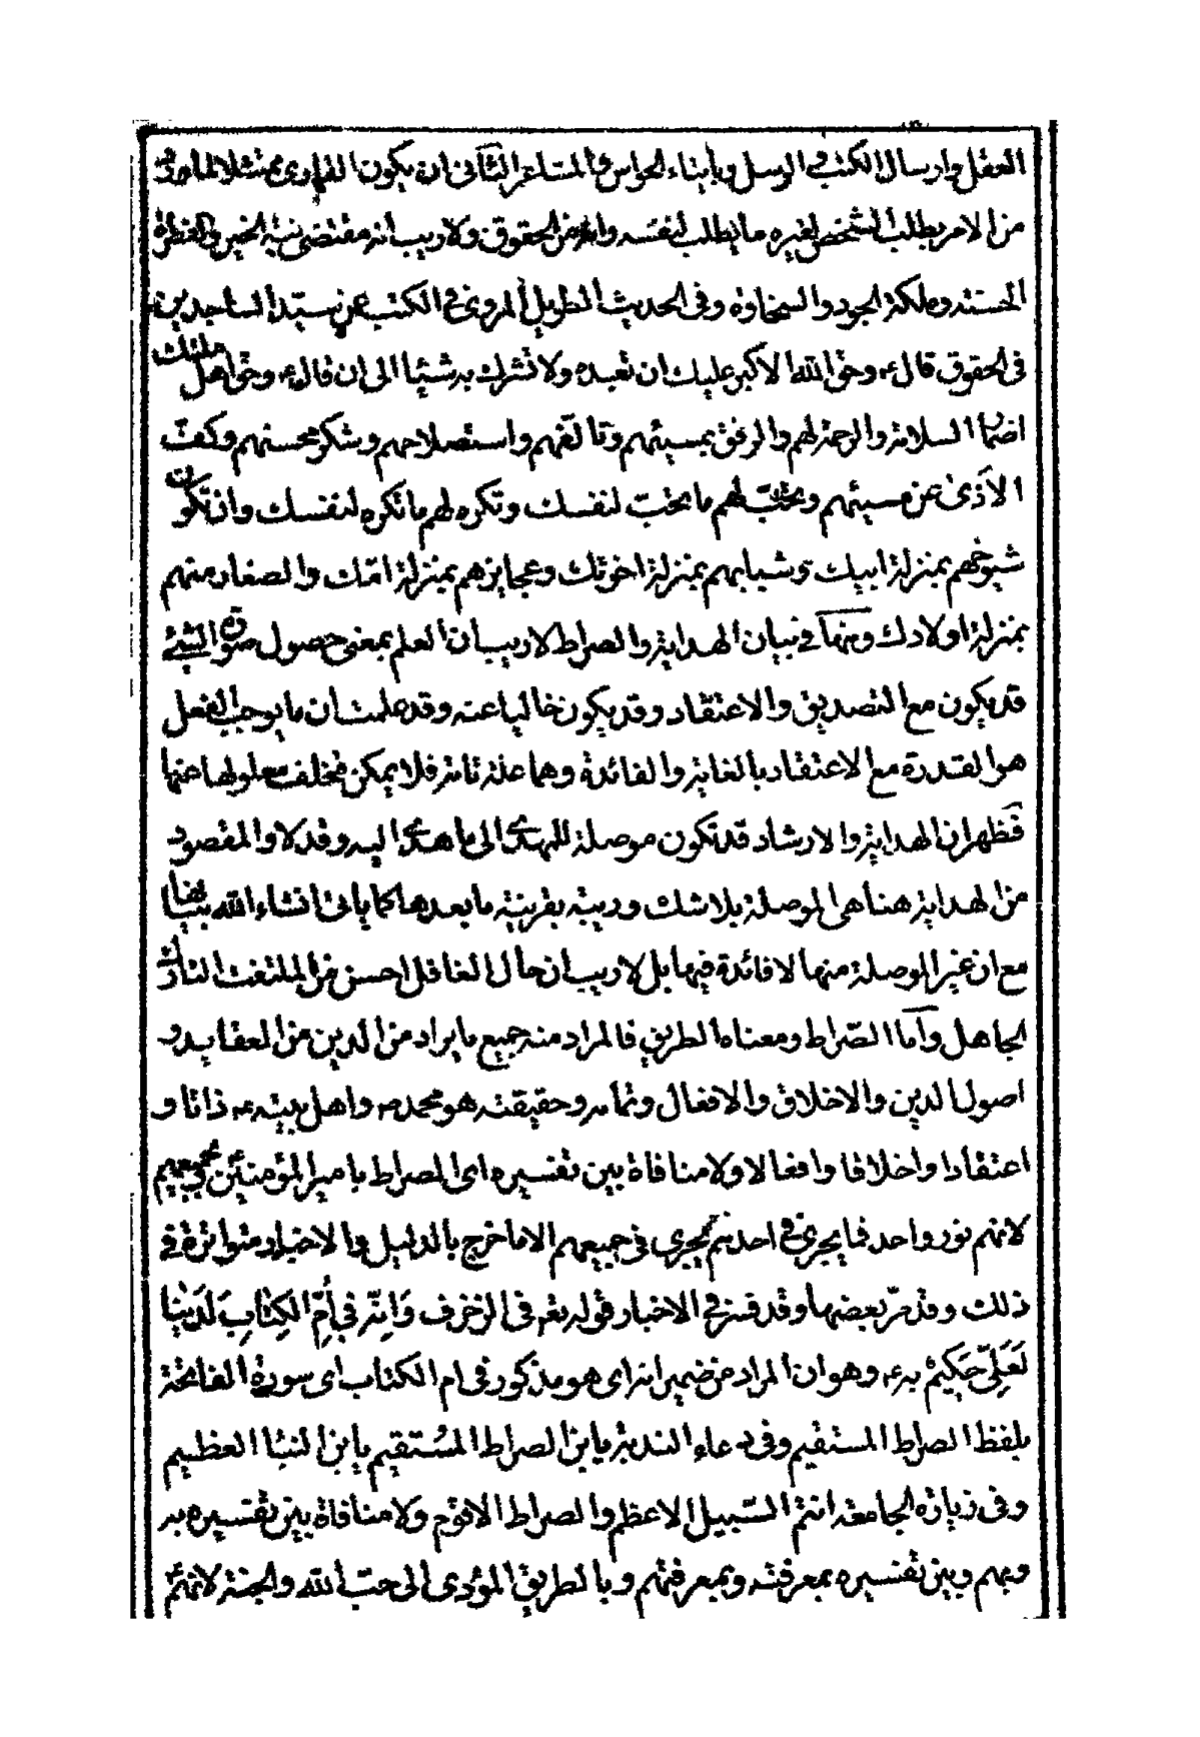 العقل وارسال الكتب و الرسل وبأيتاء الحواس والمشاعر الثانى ان يكون القارى ممتثلا لما
من الامر بطلب الشخص لغيره ما يطلب لنفسه وانه من الحقوق ولا ريب انه مقتضى نية الخير والفطرة
الحسنة وملكة الجود والسخاوة وفى الحديث الطويل المروى فى الكتب عن سيّد الساجدين
فى الحقوق قال ع وحق الله الاكبر عليك ان تعبده ولا تشرك به شيئا الى ان قال ع وحق اهل ملتك
اضمار السلامة والرحمة لهم والرفق بمسيئهم وتالّفهم واستصلاحهم وشكر محسنهم وكفّ
الاذى عن مسيئهم وتحبّ لهم ما تحبّ لنفسك وتكره لهم ما تكره لنفسك وان تكون
شيوخهم بمنزلة ابيك و شبابهم بمنزلة اخوتك وعجايزهم بمنزلة امّك والصغار منهم
بمنزلة اولادك ومنها فى بيان الهداية والصراط لا ريب ان العلم بمعنى حصول صورة الشئ
قد يكون مع التصديق والاعتقاد وقد يكون خاليا عنه وقد علمت ان ما يوجب الفعل
هو القدرة مع الاعتقاد بالغاية والفائدة وهما علة تامة فلا يمكن تخلف معلولها عنها
فظهر ان الهداية والارشاد قد تكون موصلة للمهدى الى ما هدى اليه وقد لا والمقصود
من الهداية هنا هى الموصلة بلا شك وريبة بقرينة ما بعدها كما ياتى انشاء الله بيانها
مع ان غير الموصلة منها لا فائدة فيها بل لا ريب ان حال الغافل احسن من الملتفت التارك
الجاهل وأما الصّراط ومعناه الطريق فالمراد منه جميع ما يراد من الدين من العقايد و
اصول الدين والاخلاق والافعال وتمامه وحقيقته هو محمد ص واهل بيته ع ذاتا و
اعتقادا واخلاقا وافعالا ولا منافاة بين تفسيره اى الصراط بامير المؤمنين ع وبجميعهم
لانهم نور واحد فما يجرى فى احدهم يجرى فى جميعهم الا ما خرج بالدليل والاخبار متواترة فى
ذلك وقد مرّ بعضها وقد فسّر فى الاخبار قوله تعم فى الزخرف وَاِنّه فى أُمِّ الكِتابِ لَدَيْنا
لَعَلِىّ حَكيمٌ به ع وهو ان المراد من ضمير انه اى هو مذكور فى ام الكتاب اى سورة الفاتحة
بلفظ الصراط المستقيم وفى دعاء الندبة يابن الصراط المُستقيم يابن النبا العظيم
وفى زيارة الجامعة انتم السّبيل الاعظم والصراط الاقوم ولا منافاة بين تفسيره به
وبهم وبين تفسيره بمعرفته وبمعرفتهم وبالطريق المؤدى الى حبّ الله والجنة لانهم